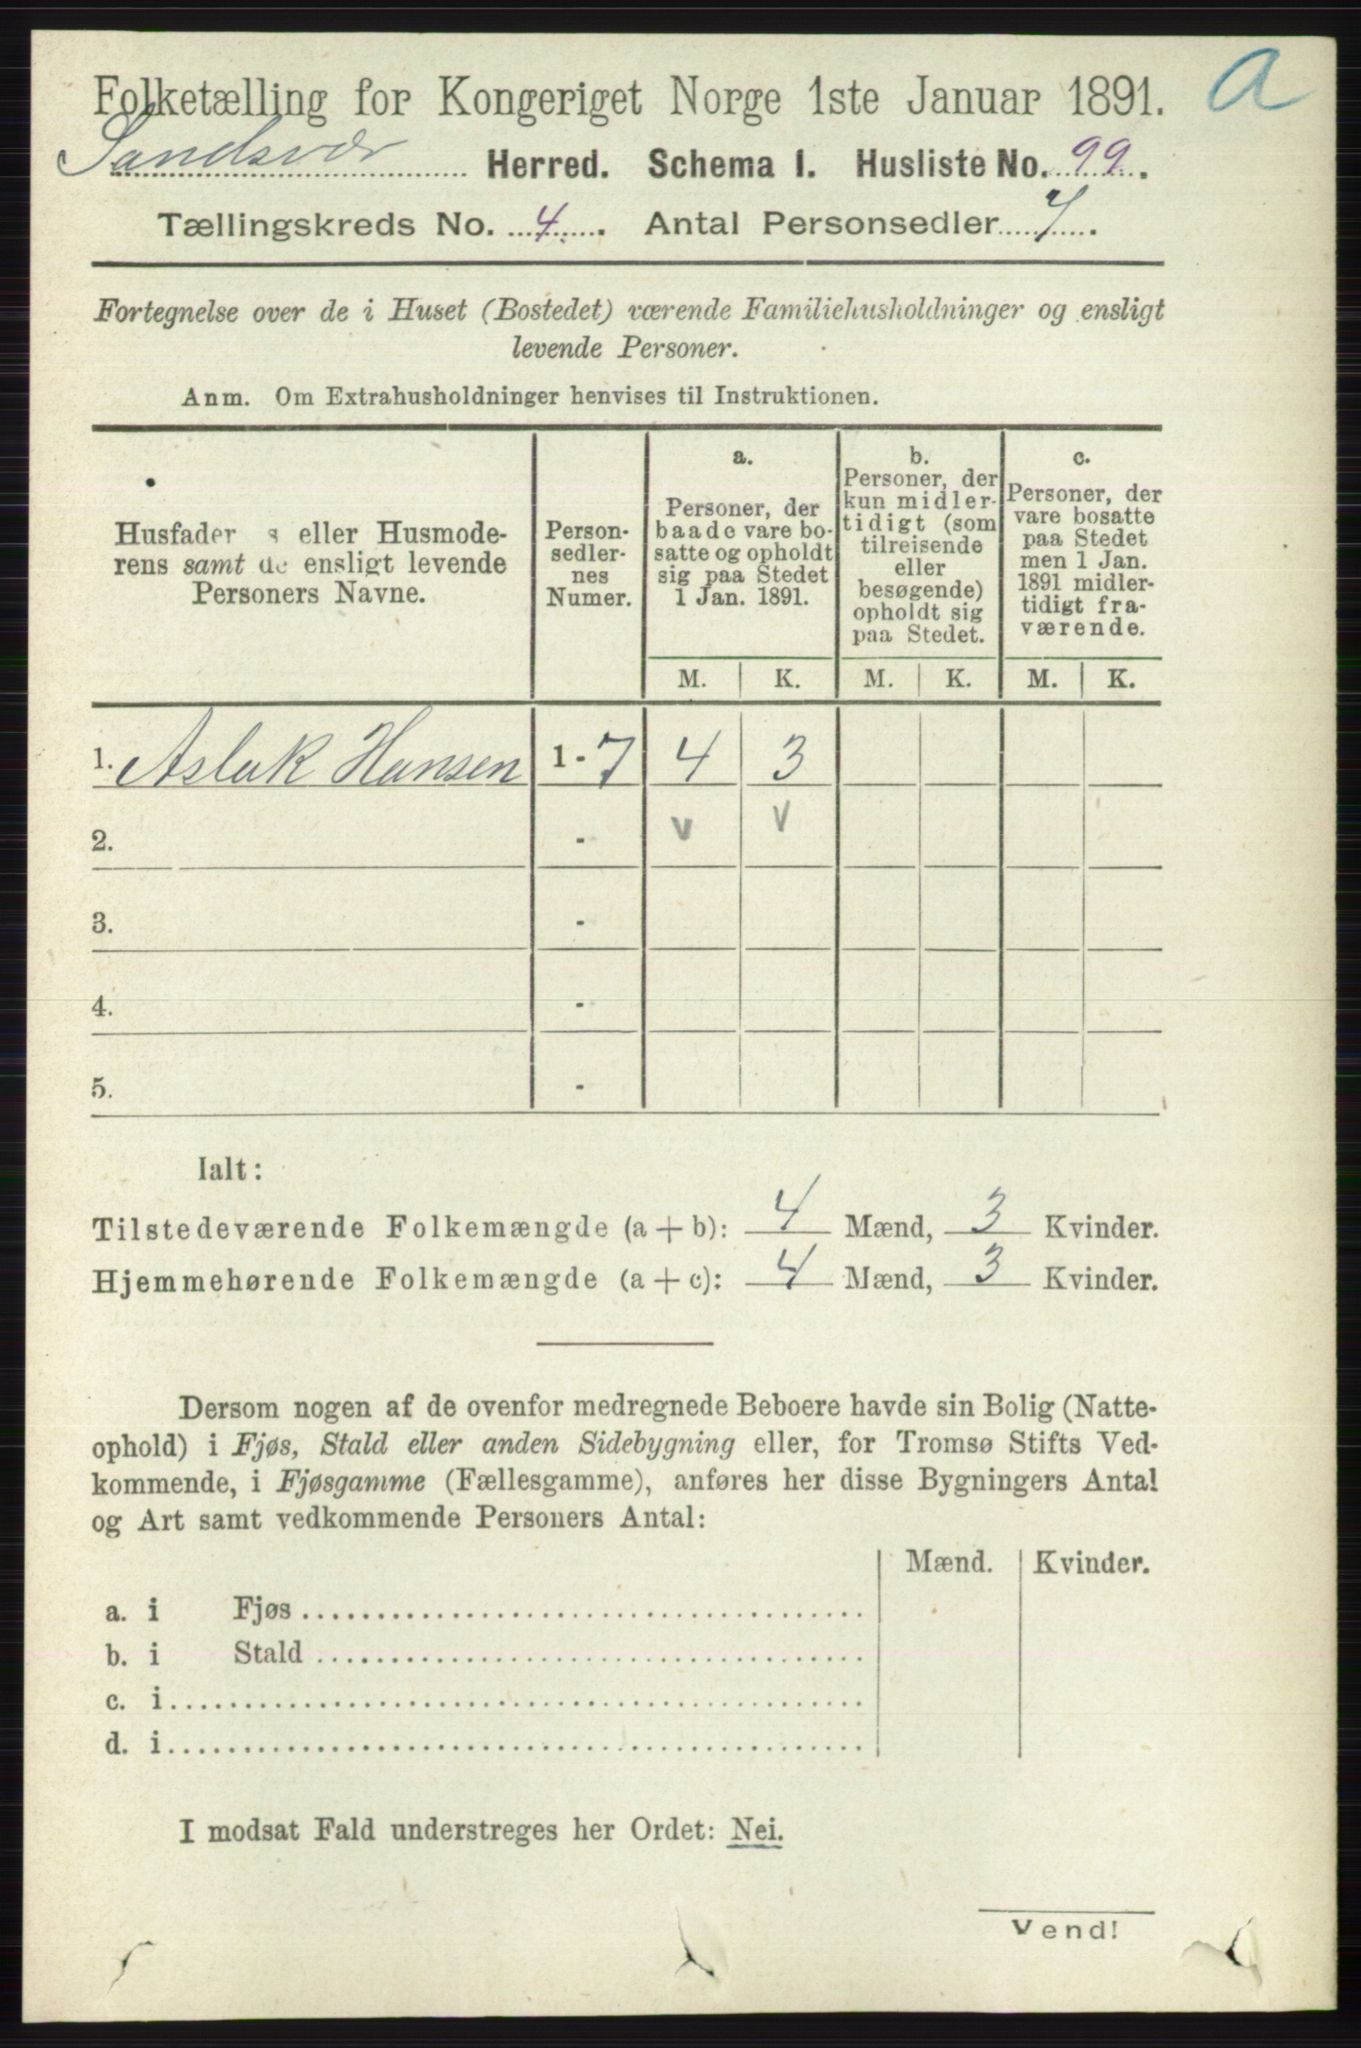 a
Folketælling for Kongeriget Norge 1ste Januar 1891.
Sandsvær Herred. Schema I. Husliste No. 99.
Tællingskreds No. 4. Antal Personsedler 7.
Fortegnelse over de i Huset (Bostedet) værende Familiehusholdninger og ensligt
levende Personer.
Anm. Om Extrahusholdninger henvises til Instruktionen.
Husfader s eller Husmode-
rens samt de ensligt levende
Personers Navne.
Person-
sedler-
nes
Numer.
a.
Personer, der
baade vare bo-
satte og opholdt
sig paa Stedet
1 Jan. 1891.
b.
Personer, der
kun midler-
tidigt (som
tilreisende
eller
besøgende)
opholdt sig
paa Stedet.
c.
Personer, der
vare bosatte
paa Stedet
men 1 Jan.
1891 midler-
tidigt fra-
værende.
M. K. M. K. M. K.
1. Aslak Hansen 1 - 7 4 3
2. - v v
3. -
4. -
5. -
Ialt:
Tilstedeværende Folkemængde (a + b): 4 Mænd, 3 Kvinder.
Hjemmehørende Folkemængde (a + c): 4 Mænd, 3 Kvinder.
Dersom nogen af de ovenfor medregnede Beboere havde sin Bolig (Natte-
ophold) i Fjøs, Stald eller anden Sidebygning eller, for Tromsø Stifts Ved-
kommende, i Fjøsgamme (Fællesgamme), anføres her disse Bygningers Antal
og Art samt vedkommende Personers Antal:
Mænd. Kvinder.
a. i Fjøs
b. i Stald
c. i
d. i
I modsat Fald understreges her Ordet: Nei.
Vend!